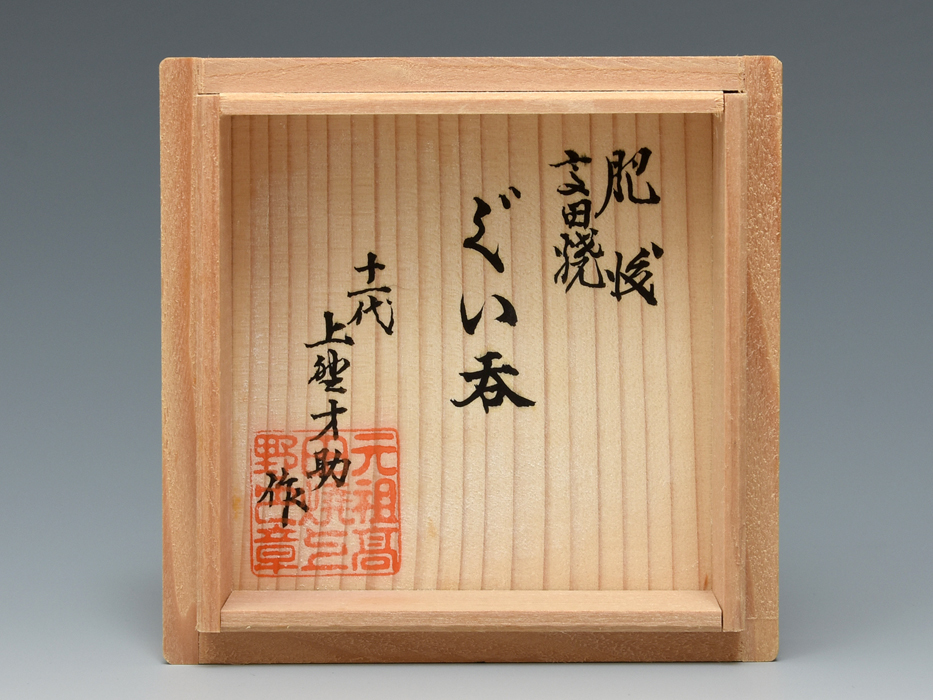 肥後
高田焼
ぐい呑
十一代
上野才助
作
元祖高
田焼上
野之章